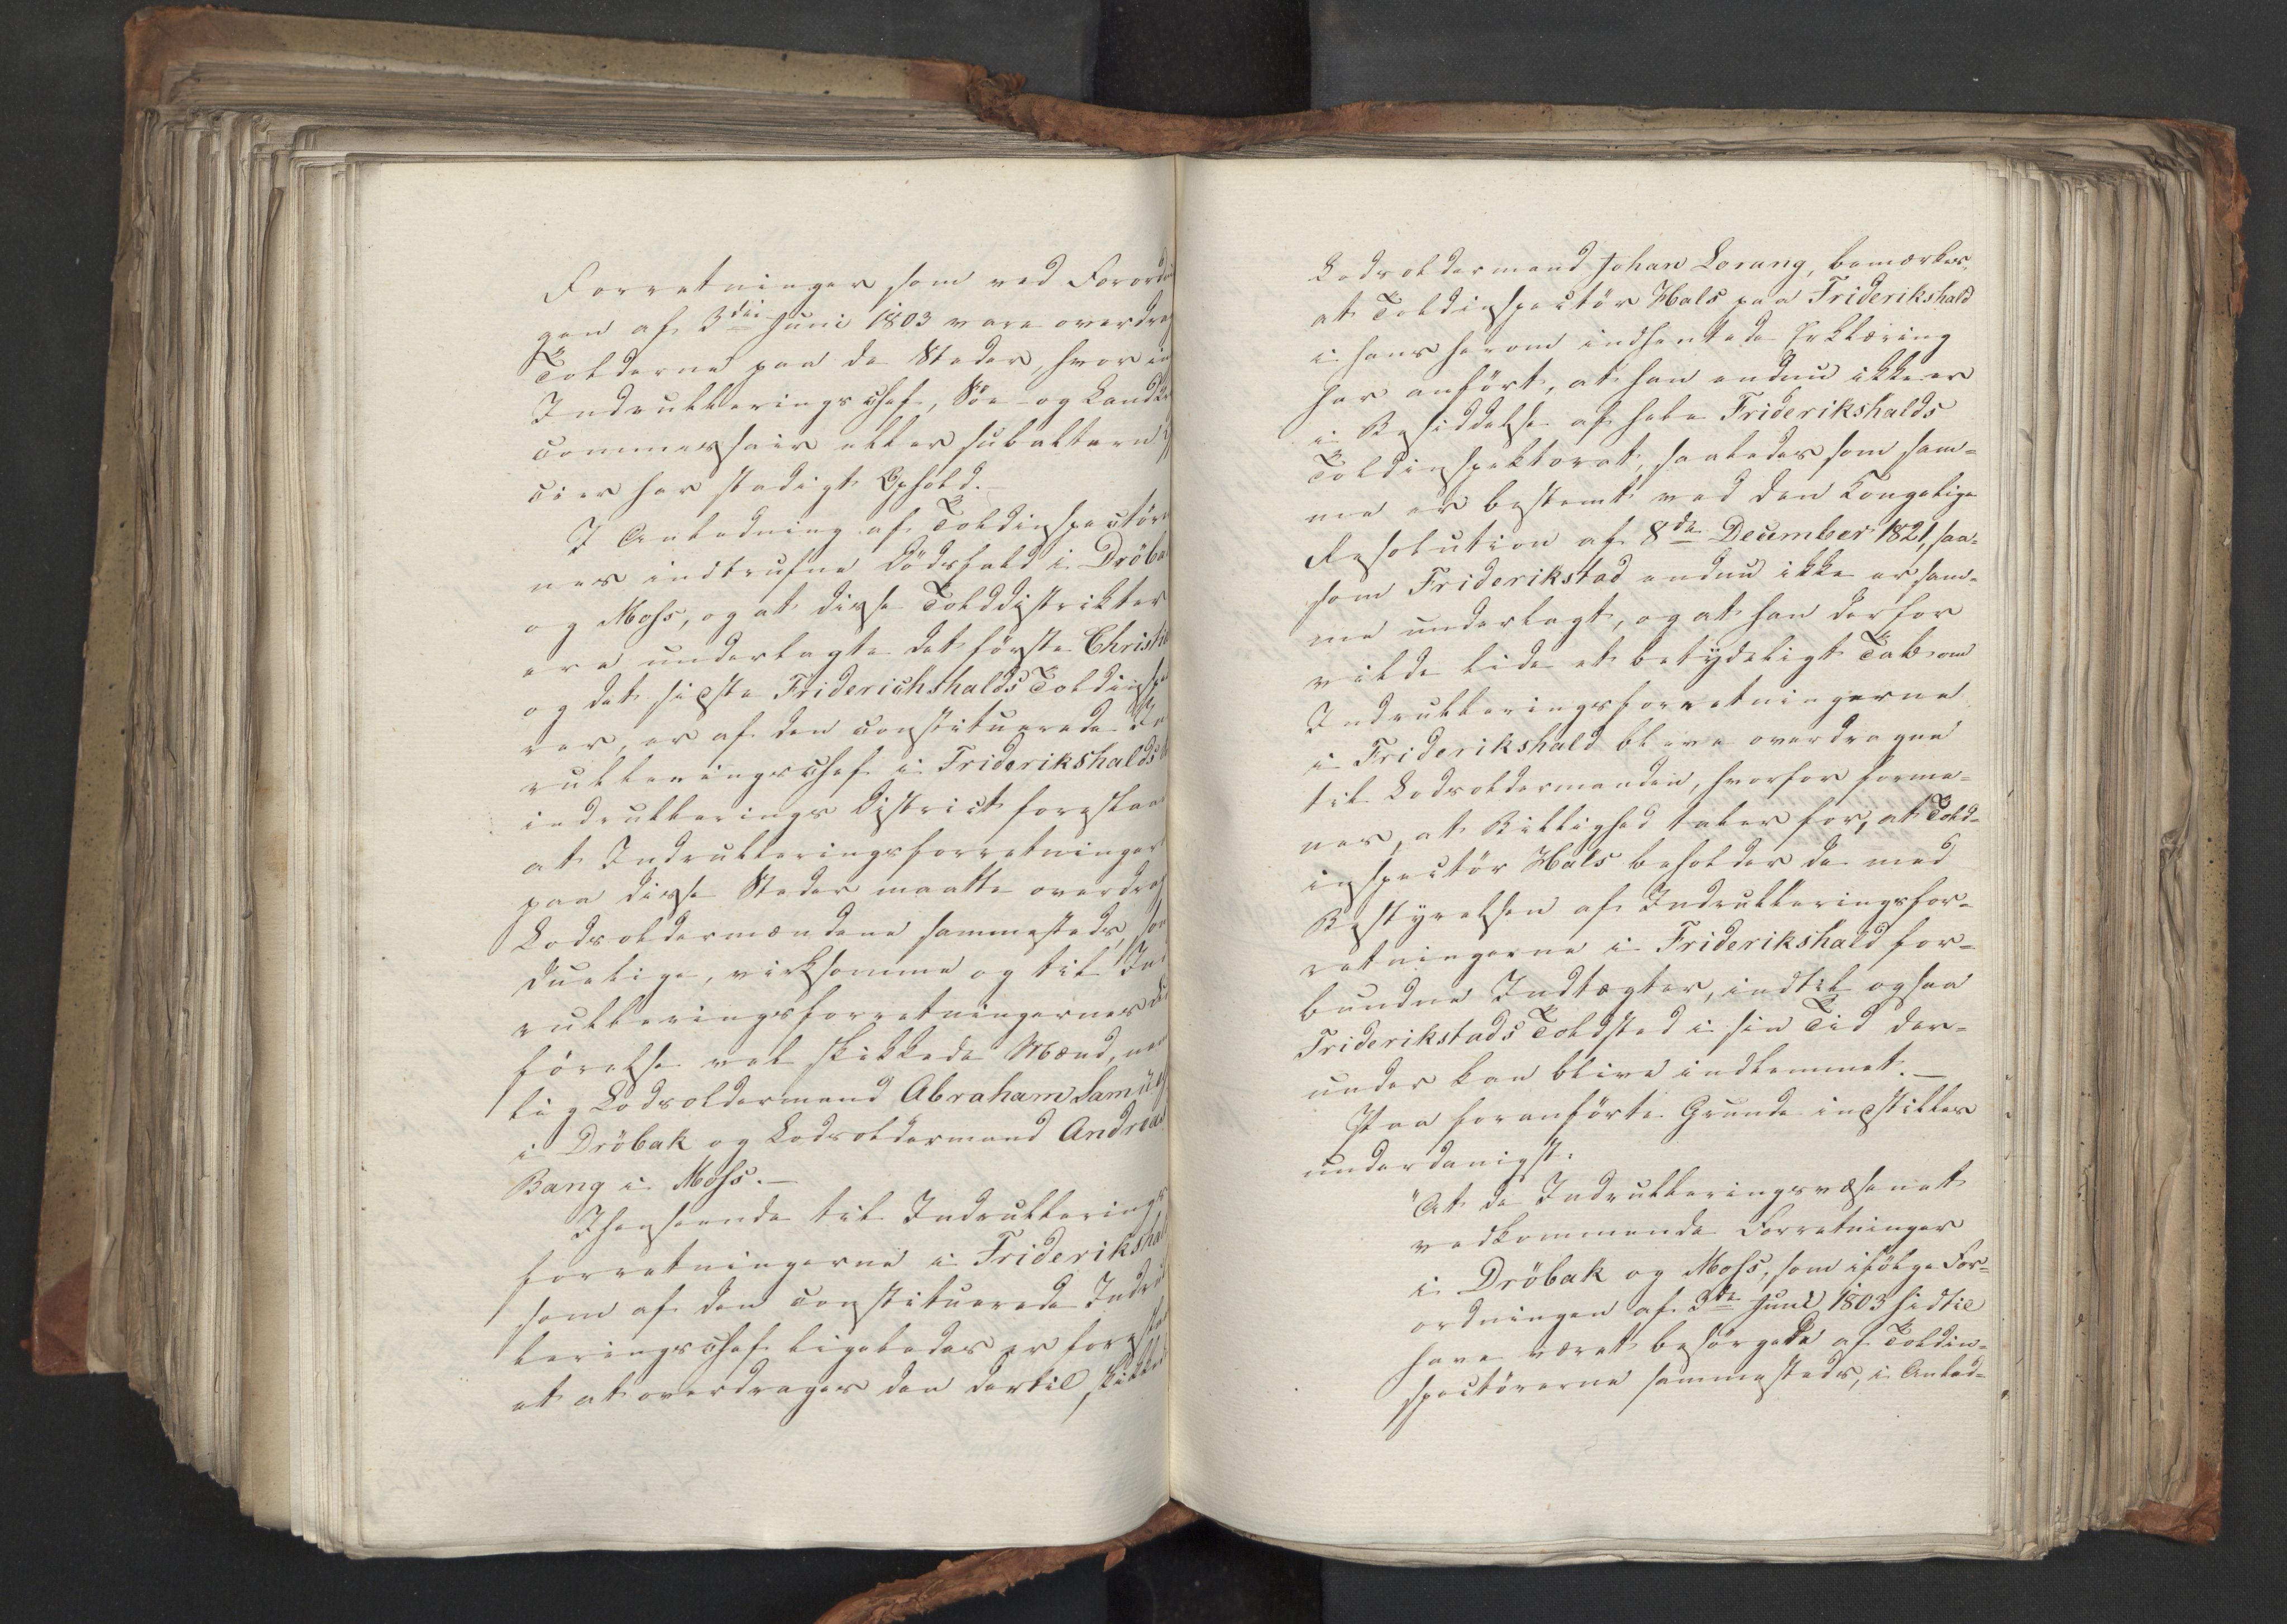 Forretninger som ved Forordnin
gen af 3die Juni 1803 vare overdrag
Tolderne paa de Steder, hvor in
Indrulleringschef, Söe- og Land K
commissair eller subaltern Of
cier har stadigt Ophold.
I Anledning af Toldinspectörer
nes indtrufne Dödsfald i Dröba
og Moss, og at disse Tolddistrikter
ere underlagte det förste Christia
og det sidste Friderichshalds Toldinspe
rer, er af den constituerede In
rulleringschef i Friderikshalds
indrullerings District foreslaa
at Indrulleringsforretninger
paa disse Steder maatte overdrag
Lodsoldermændene sammesteds, som
duelige, virksomme og til Ind
rulleringsforretningernes Ud
förelse vel skikkede Mænd, nem
lig Lodsoldermand Abraham Samuels
i Dröbak og Lodsoldermand Andreas
Bang i Moss. —
Ihenseende til Indrullerings
forretningerne i Friderikshal
som af den constituerede Indru
leringschef ligeledes er foresla
et at overdrages den dertil skikked
Lodsoldermand Johan Lorang, bemærkes,
at Toldinspectör Hals paa Friderikshald
i hans herom indhentede Erklæring
har anfört, at han endnu ikke er
i Besiddelse af hele Friderikshalds
Toldinspektorat, saaledes som sam-
me er bestemt ved den Kongelige
Resolution af 8de December 1821, saa-
som Friderikstad endnu ikke er sam-
me underlagt, og at han derfor
vilde lide et betydeligt Tab om
Indrulleringsforretningerne
i Friderikshald bleve overdragne
til Lodsoldermanden, hvorfor forme-
nes, at Billighed taler for, at Told-
inspectör Hals beholder de med
Bestyrelsen af Indrulleringsfor-
retningerne i Friderikshald for-
bundne Indtægter, indtil ogsaa
Friderikstads Toldsted i sin Tid der-
under kan blive indlemmet. —
Paa foranförte Grunde indstilles
underdanigst:
"At de Indrulleringsvæsenet
vedkommende Forretninger
i Dröbak og Moss, som ifölge For-
ordningen af 3de Juni 1803 hidtil
have været besörgede af Toldin-
spectörerne sammesteds, i Anled-